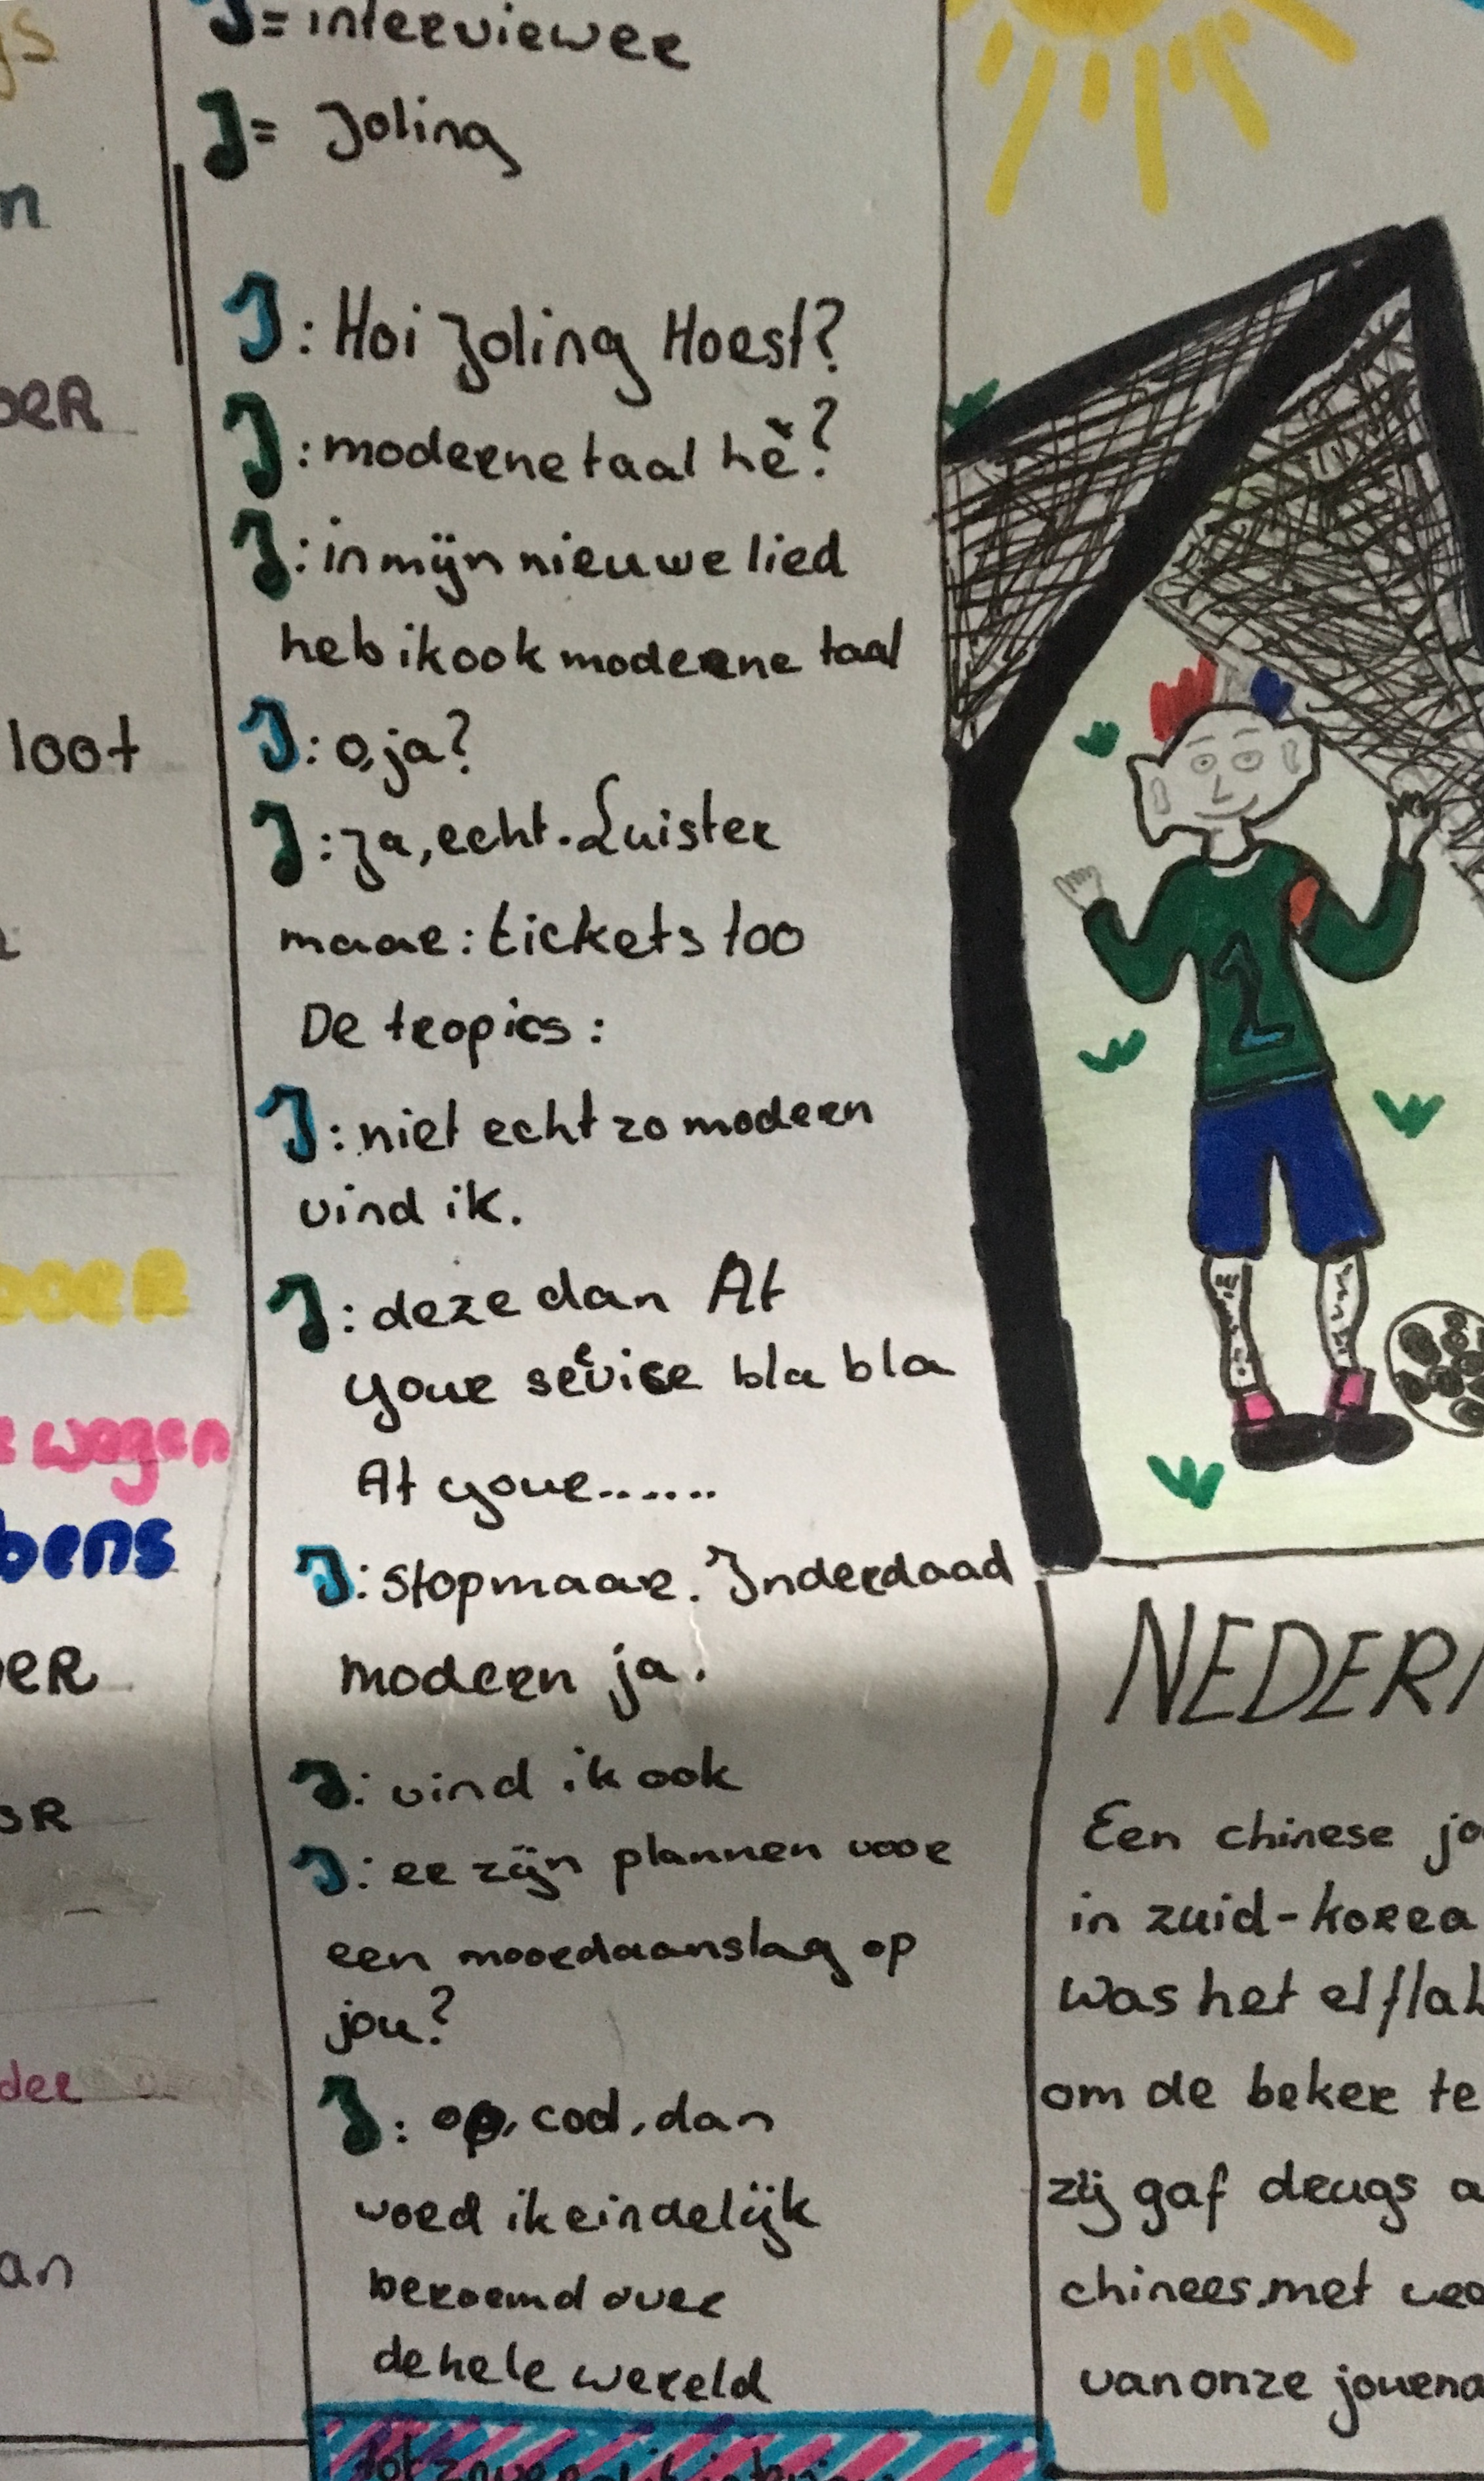 I= interviewer
J= Joling
I: Hoi Joling Hoest?
J: moderne taal hè?
J: in mijn nieuwe lied
heb ik ook moderne taal
I: o, ja?
J: Ja, echt. Luister
maar: tickets too
De tropics:
I: niet echt zo modern
vind ik.
J: deze dan At
your servise bla bla
At your.......
I: stop maar. Inderdaad
modern ja.
J: vind ik ook
I: er zijn plannen voor
een moordaanslag op
jou?
J: cool, dan
word ik eindelijk
beroemd over
de hele wereld
loot
wagen
bens
NEDERL
Een chinese jo
in zuid-korea
Was het elftal
om de beker te
zij gaf drugs a
chinees. met veo
van onze journa